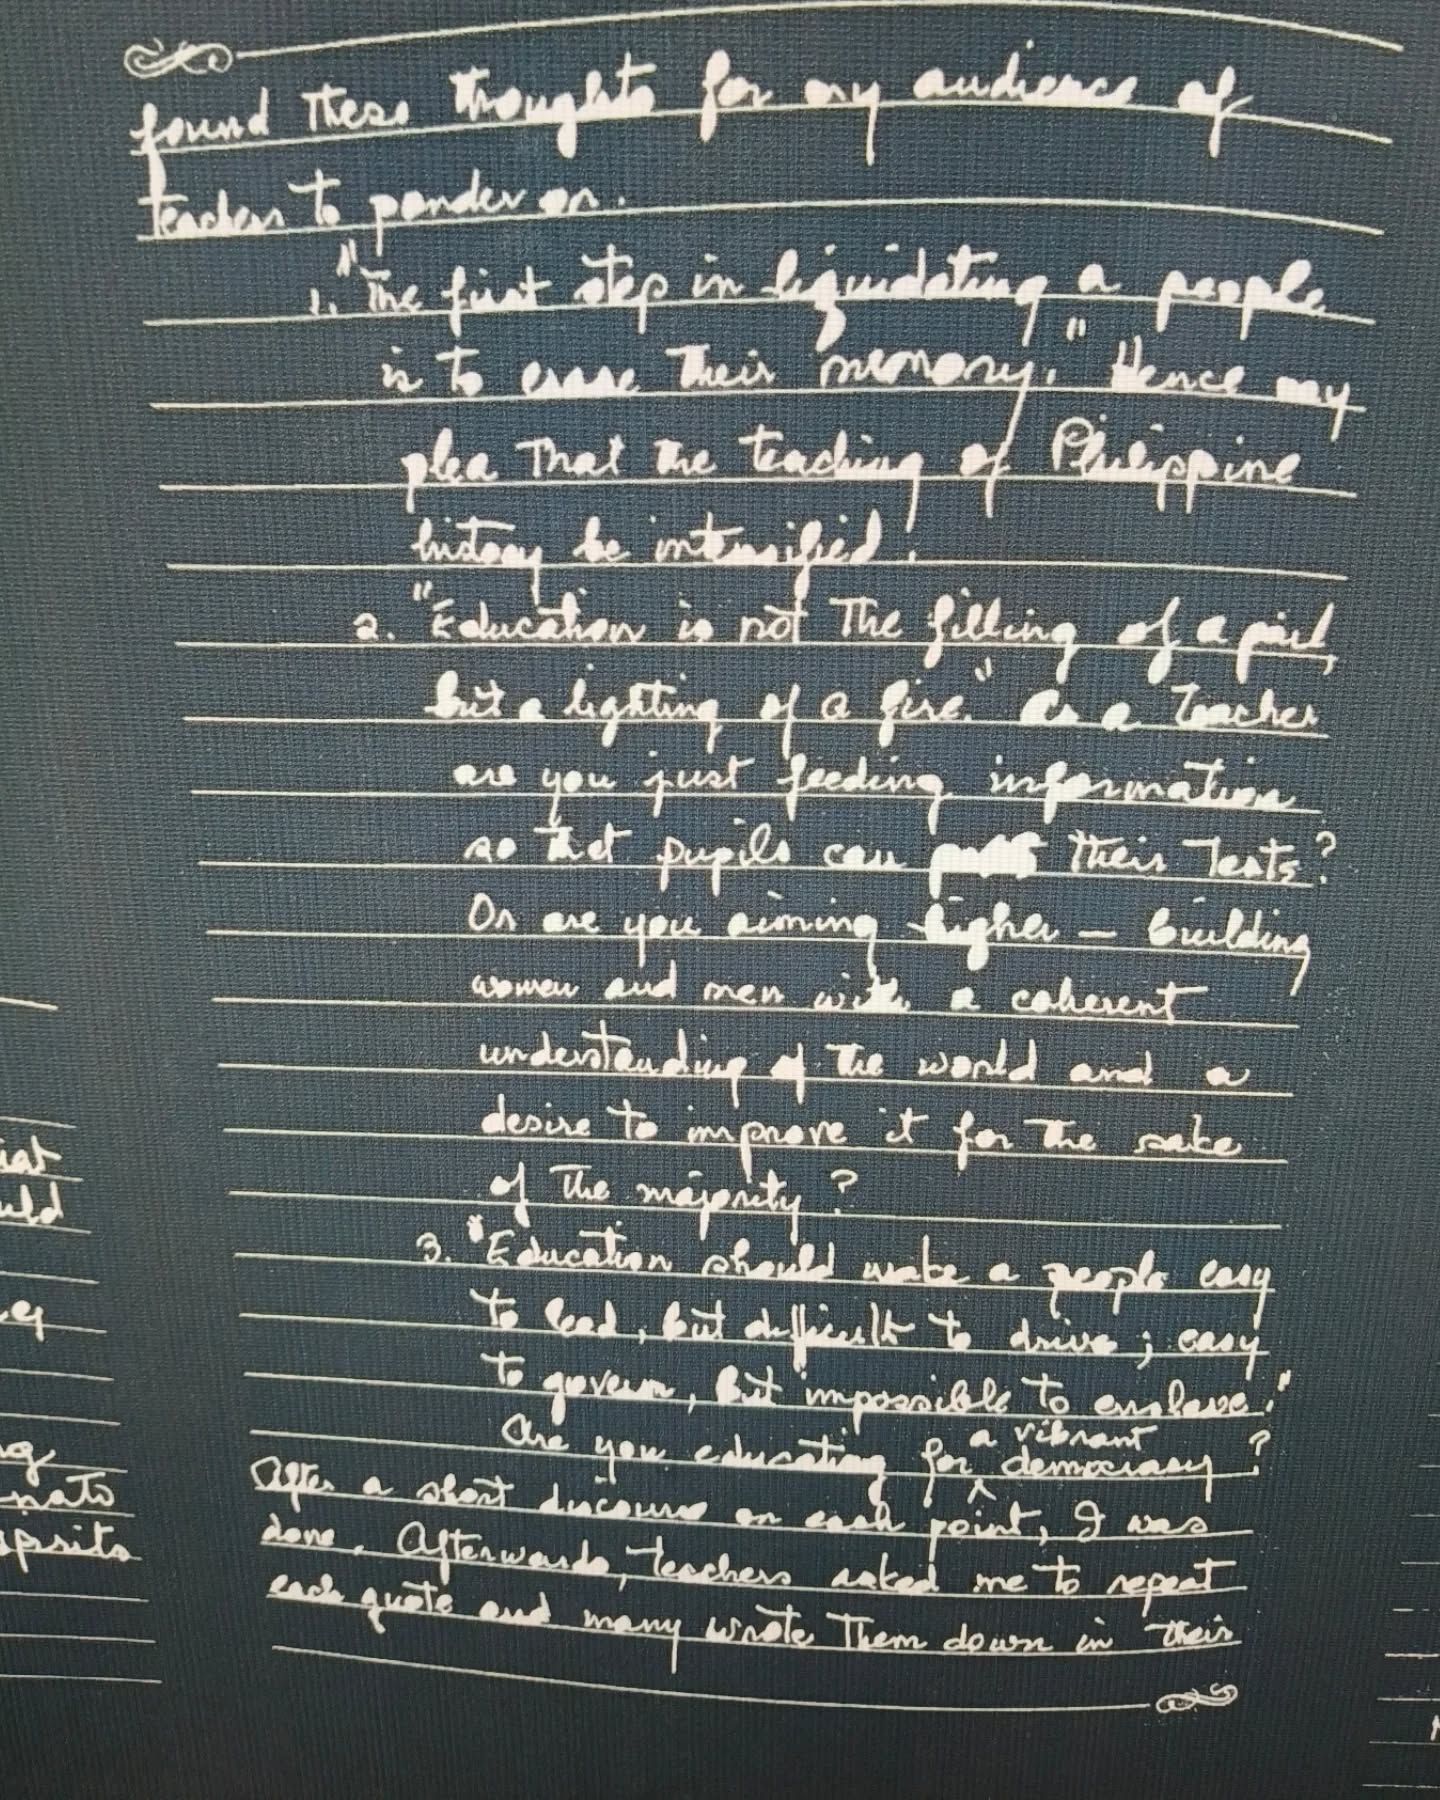 found these thoughts for my audience of
teachers to ponder on.
1. "The first step in liquidating a people
is to erase their memory." Hence my
plea that the teaching of Philippine
history be intensified.
2. "Education is not the filling of a pail,
but a lighting of a fire." As a teacher
are you just feeding information
so that pupils can pass their tests?
Or are you aiming higher – building
women and men with a coherent
understanding of the world and a
desire to improve it for the sake
of the majority?
3. "Education should make a people easy
to lead, but difficult to drive; easy
to govern, but impossible to enslave."
a vibrant
Are you educating for democracy?
After a short discourse on each point, I was
done. Afterwards, teachers asked me to repeat
each quote and many wrote them down in their